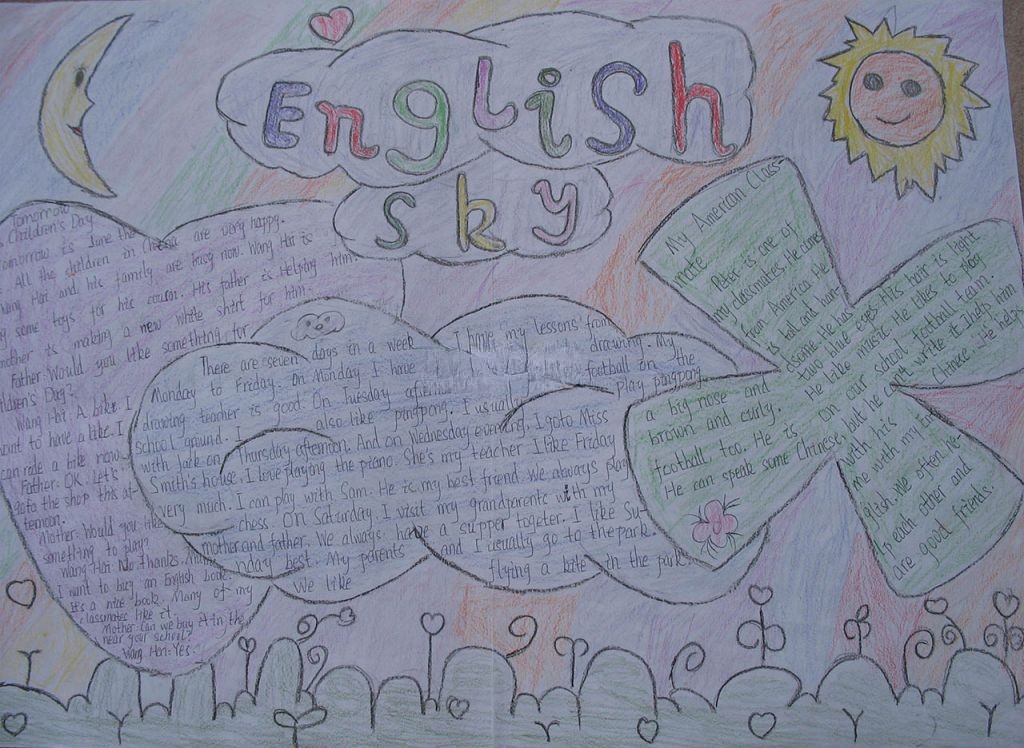 English
sky
Tomorrow
is Children's Day
Tomorrow is June the
All the children in China are very happy.
Wang Hai and his family are busy now. Wang Hai is
some toys for his cousin. His father is Helping him.
mother is making a new white shirt for him.
Father: Would you like something for
Children's Day?
Wang Hai: A bike. I
want to have a bike. I
can ride a bike now.
Father: OK. Let's
go to the shop this af-
ternoon.
Mother: Would you like
something to play?
Wang Hai: No thanks.
I want to buy an English book.
It's a nice book. Many of my
classmates like it.
Mother: Can we buy it in the
near your school?
Wang Hai: Yes.
There are seven days in a week
Monday to Friday. On Monday I have
drawing teacher is good. On Tuesday afternoon
school around. I also like pingpong. I usually
with Jack on Thursday afternoon. And on Wednesday evening, I goto Miss
Smith's house. I love playing the piano. She's my teacher. I like Friday
very much. I can play with Sam. He is my best friend. We always play
chess. On Saturday. I visit my grandparents with my
mother and father. We always have a supper togeter. I like Su-
nday best. My parents and I usually go to the park.
We like flying a kite in the park.
I have my lessons from
drawing. My
football on the
play pingpong
My American Class-
mate
Peter is one of
my classmates. He comes
from America. He
is tall and han-
dsome. He has
two blue eyes. His hair is light
brown and curly. a big nose and
He like music. He likes to play
football, too. He is on our school football team.
He can speak some Chinese, but he can't write it. I help him
with his Chinese. He helps
me with my En-
glish. We often he-
lp each other and
are good friends.